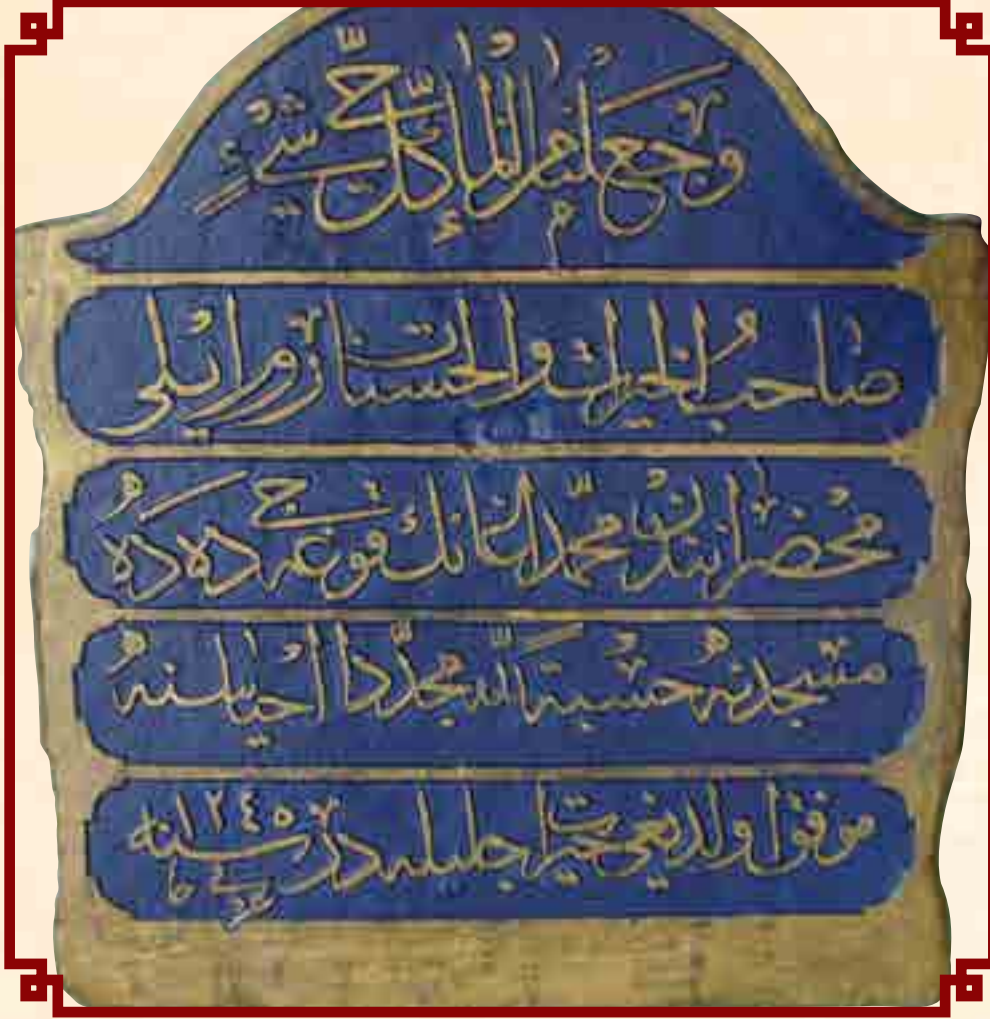 وجعلنا من الماء كل شيء حي
صاحب الخيرات والحسنات روم ايلى
محضر محمد قوغه جى ده ده
مسجدنه حسبة لله مجددا احيا سنه
موفق اولديغى خيرات جليله در سنه ١٢٤٥